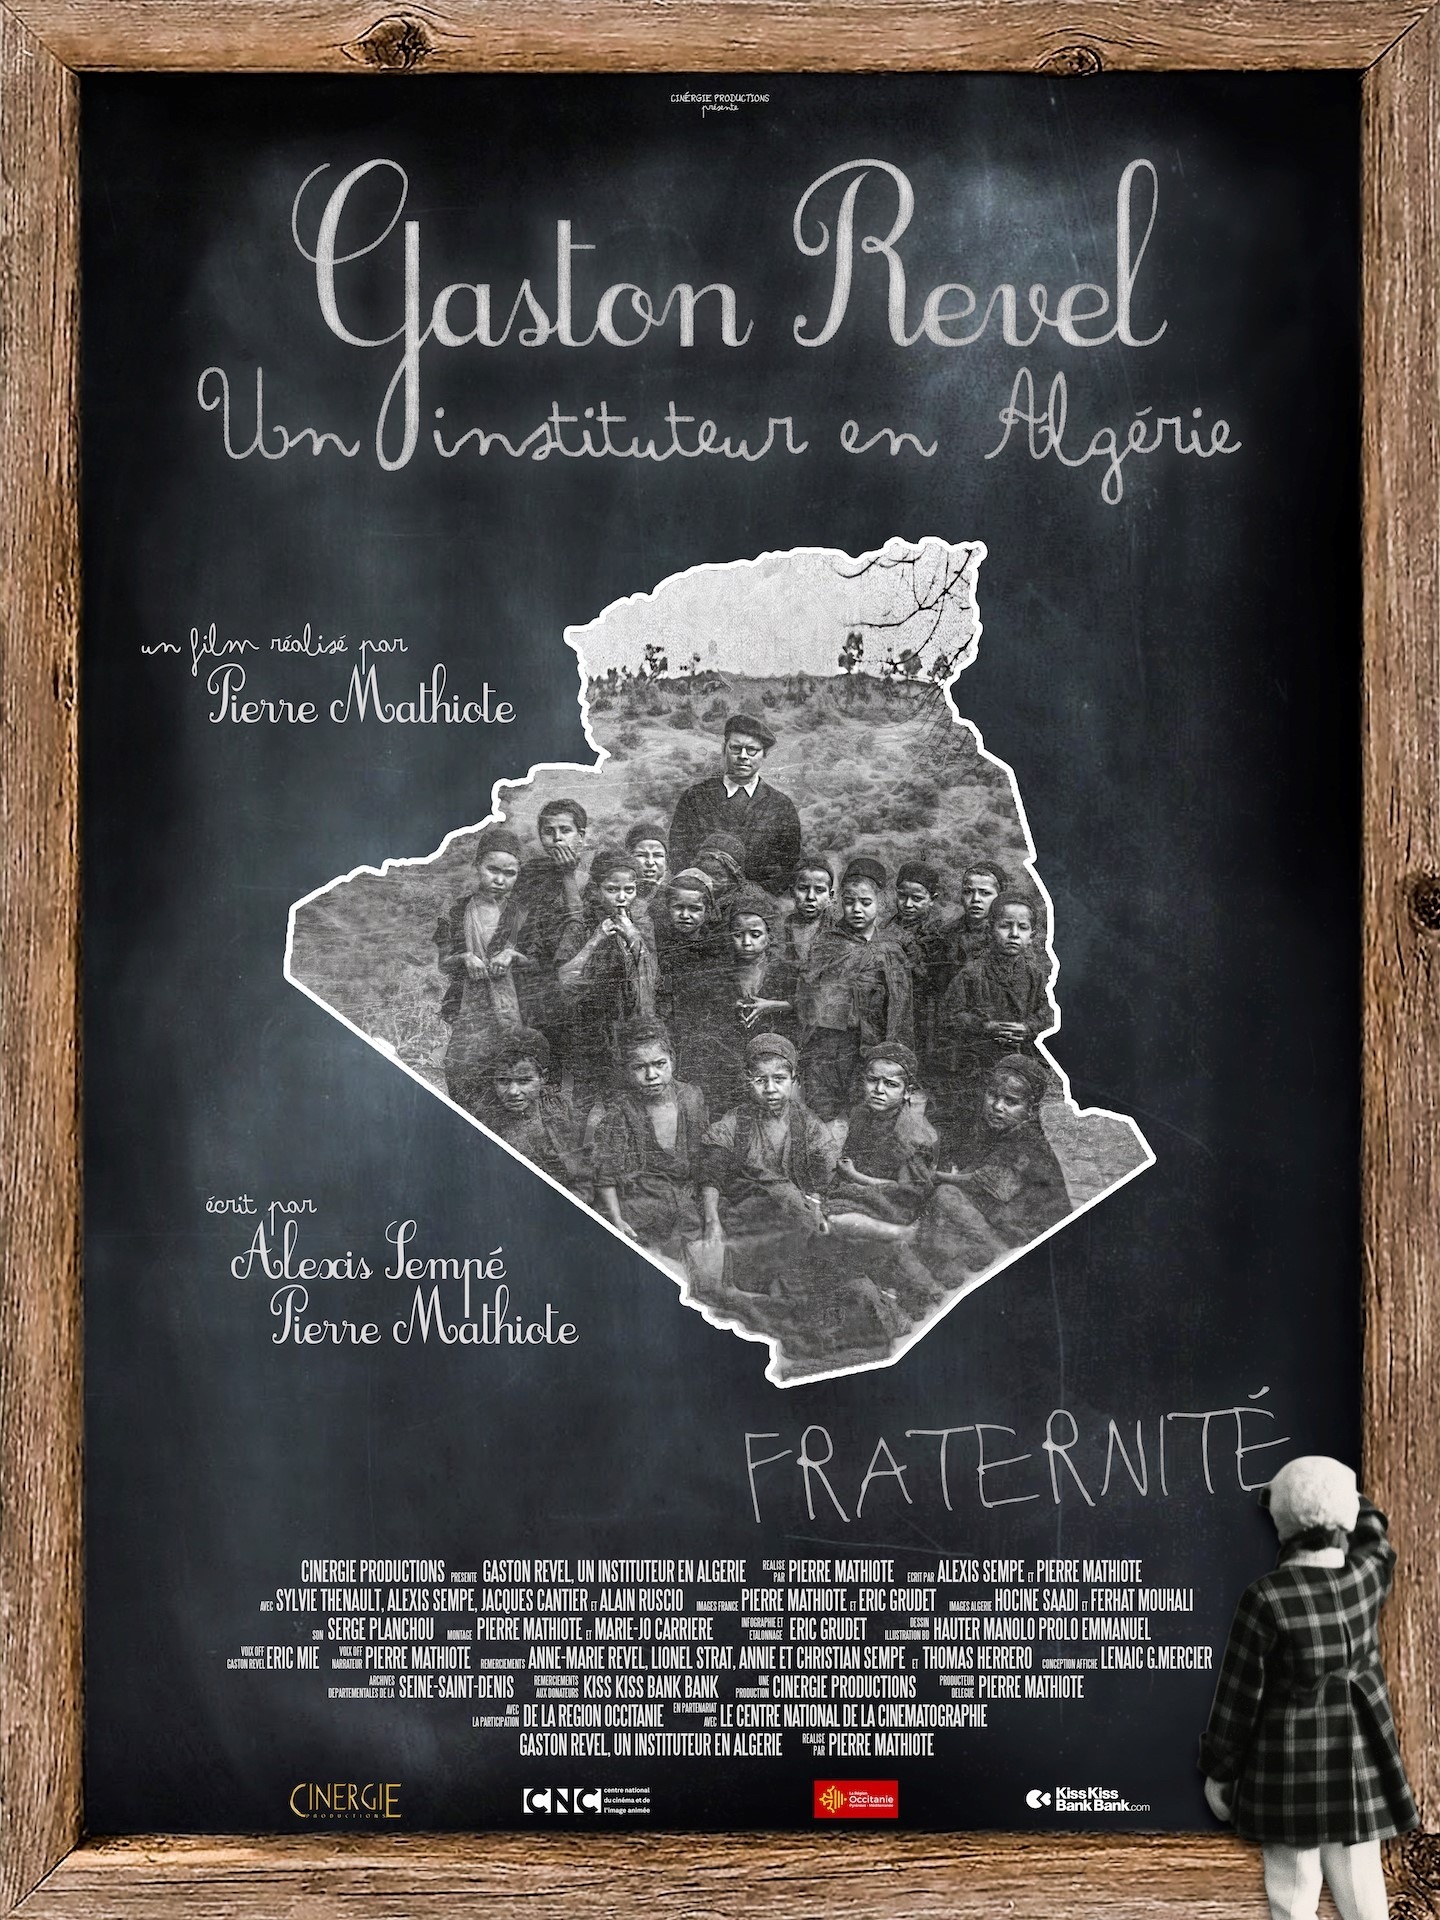 CINÉRGIE PRODUCTIONS
présente
Gaston Revel
Un instituteur en Algérie
un film réalisé par
Pierre Mathiote
écrit par
Alexis Sempé
Pierre Mathiote
FRATERNITÉ
CINERGIE PRODUCTIONS PRESENTE GASTON REVEL, UN INSTITUTEUR EN ALGERIE REALISE PAR PIERRE MATHIOTE ECRIT PAR ALEXIS SEMPE ET PIERRE MATHIOTE
AVEC SYLVIE THENAULT, ALEXIS SEMPE, JACQUES CANTIER ET ALAIN RUSCIO IMAGES FRANCE PIERRE MATHIOTE ET ERIC GRUDET IMAGES ALGERIE HOCINE SAADI ET FERHAT MOUHALI
SON SERGE PLANCHOU MONTAGE PIERRE MATHIOTE ET MARIE-JO CARRIERE INFOGRAPHIE ET ETALONNAGE ERIC GRUDET DESSIN ILLUSTRATION BD HAUTER MANOLO PROLO EMMANUEL
VOIX OFF GASTON REVEL ERIC MIE VOIX OFF NARRATEUR PIERRE MATHIOTE REMERCIEMENTS ANNE-MARIE REVEL, LIONEL STRAT, ANNIE ET CHRISTIAN SEMPE ET THOMAS HERRERO CONCEPTION AFFICHE LENAIC G.MERCIER
ARCHIVES DEPARTEMENTALES DE LA SEINE-SAINT-DENIS REMERCIEMENTS AUX DONATEURS KISS KISS BANK BANK UNE PRODUCTION CINERGIE PRODUCTIONS PRODUCTEUR DELEGUE PIERRE MATHIOTE
AVEC LA PARTICIPATION DE LA REGION OCCITANIE EN PARTENARIAT AVEC LE CENTRE NATIONAL DE LA CINEMATOGRAPHIE
GASTON REVEL, UN INSTITUTEUR EN ALGERIE REALISE PAR PIERRE MATHIOTE
CINERGIE
PRODUCTIONS
CNC
centre national
du cinéma et de
l'image animée
La Région
Occitanie
Pyrénées - Méditerranée
KissKiss
BankBank.com